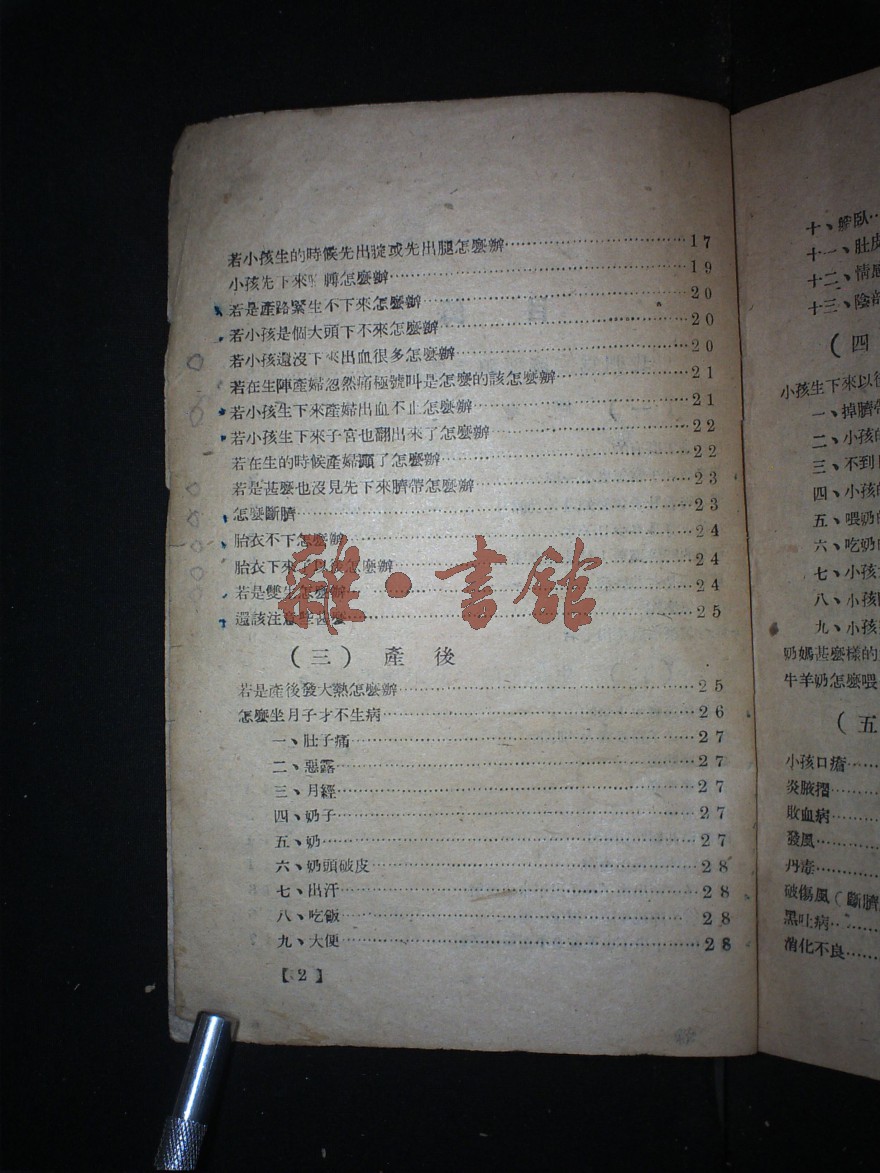 若小孩生的時候先出腚或先出腿怎麼辦 17
小孩先下來 膊怎麼辦 19
若是產路緊生不下來怎麼辦 20
若小孩是個大頭下不來怎麼辦 20
若小孩還沒下來出血很多怎麼辦 20
若在生陣產婦忽然痛極號叫是怎麼的該怎麼辦 21
若小孩生下來產婦出血不止怎麼辦 21
若小孩生下來子宮也翻出來了怎麼辦 22
若在生的時候產婦顚了怎麼辦 22
若是甚麼也沒見先下來臍帶怎麼辦 23
怎麼斷臍 23
胎衣不下怎麼辦 24
胎衣下來了以後怎麼辦 24
若是雙生怎麼辦 24
還該注意些甚麼 25
(三) 產後
若是產後發大熱怎麼辦 25
怎麼坐月子才不生病 26
一、肚子痛 27
二、惡露 27
三、月經 27
四、奶子 27
五、奶 27
六、奶頭破皮 28
七、出汗 28
八、吃飯 28
九、大便 28
【2】
雜·書館
十、臥
十一、肚皮
十二、情感
十三、陰部
(四
小孩生下來以後
一、掉臍帶
二、小孩的
三、不到
四、小孩的
五、喂奶的
六、吃奶
七、小孩
八、小孩
九、小孩
奶媽甚麼樣的
牛羊奶怎麼喂
(五
小孩口瘡
炎腋摺
敗血病
發風
丹毒
破傷風(斷臍
黑吐病
消化不良